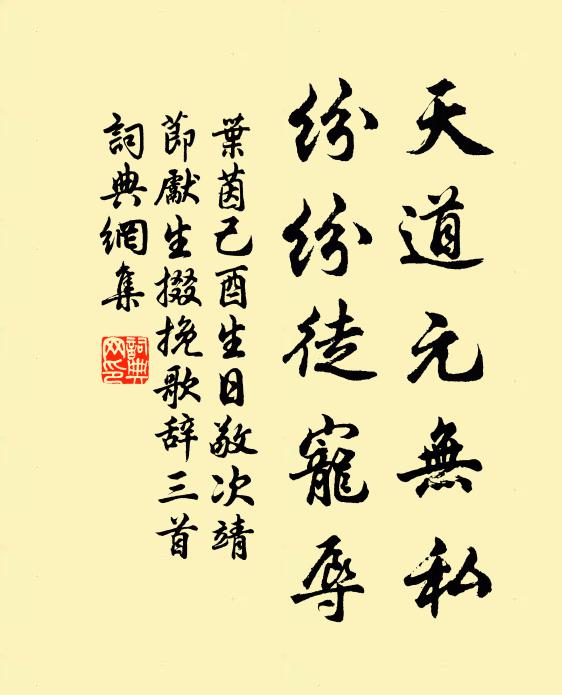 天道元無私
紛紛徒寵辱
葉茵己酉生日敬次靖
節獻生掇挽歌辞三首
詞典網集
詞典網印